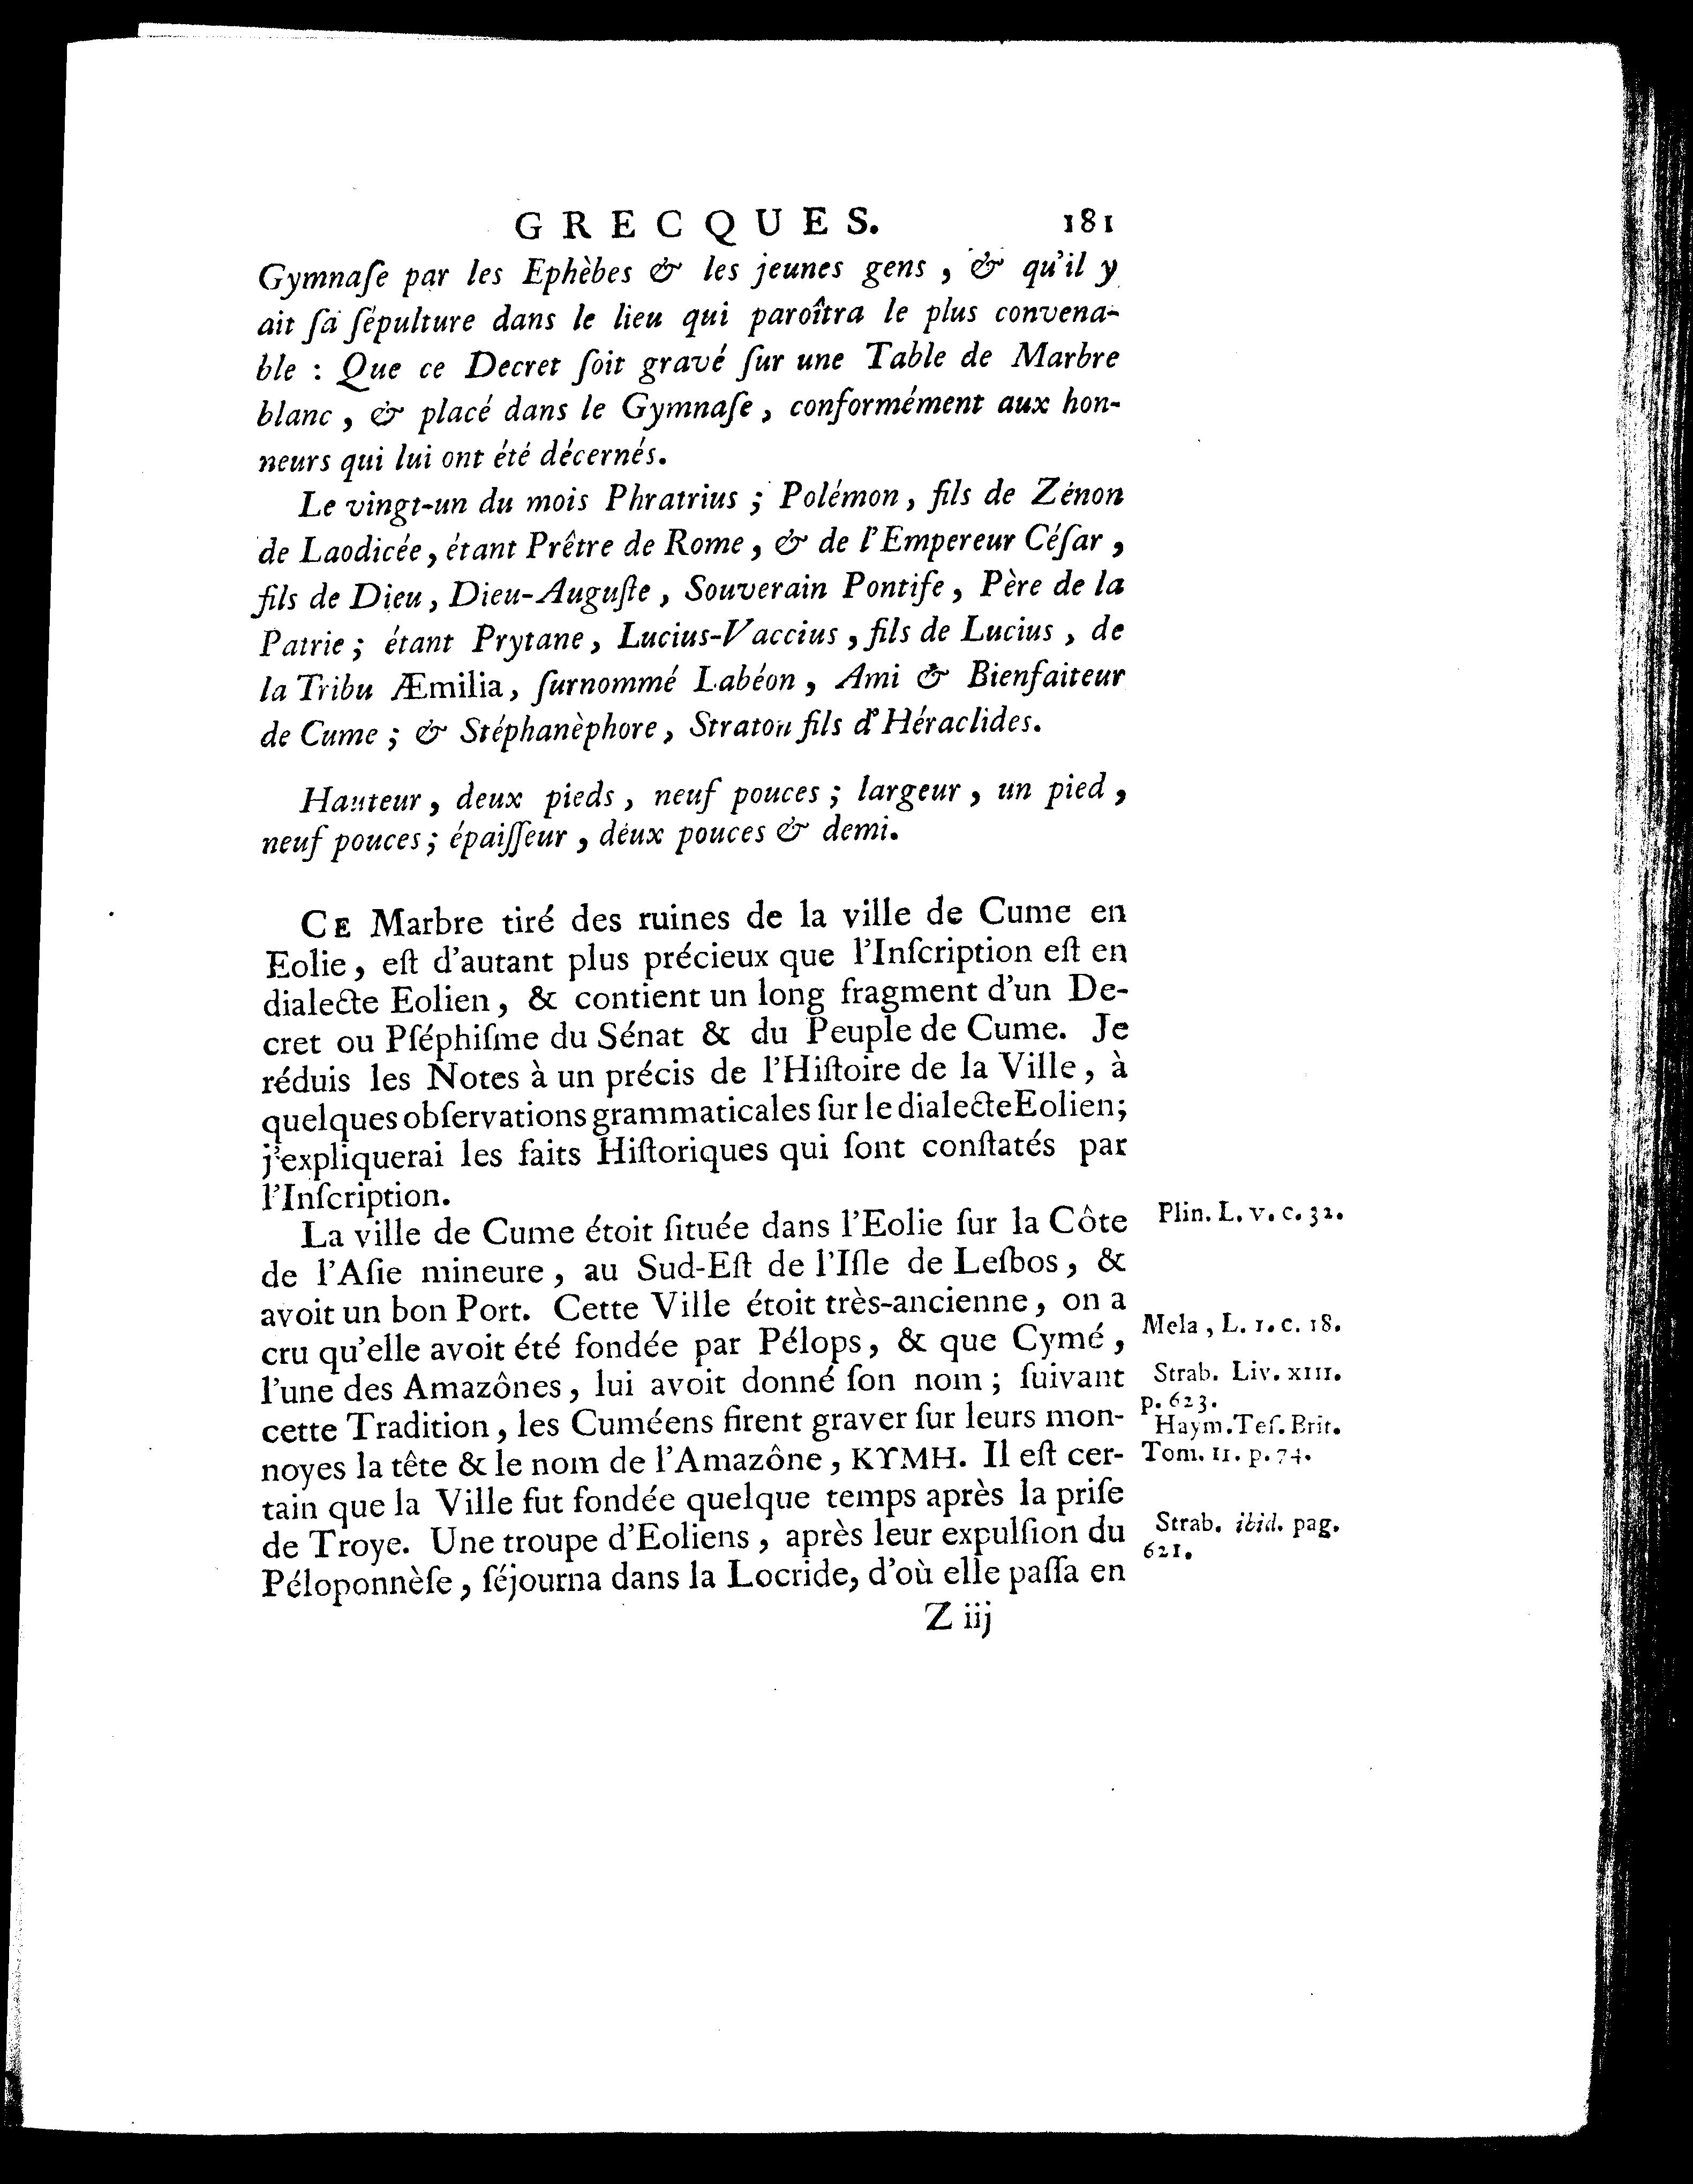 GRECQUES. 181
Gymnaſe par les Ephèbes & les jeunes gens, & qu'il y
ait ſa ſépulture dans le lieu qui paroîtra le plus convena-
ble : Que ce Decret ſoit gravé ſur une Table de Marbre
blanc, & placé dans le Gymnaſe, conformément aux hon-
neurs qui lui ont été décernés.
Le vingt-un du mois Phratrius ; Polémon, fils de Zénon
de Laodicée, étant Prêtre de Rome, & de l'Empereur Céſar,
fils de Dieu, Dieu-Auguſte, Souverain Pontife, Père de la
Patrie ; étant Prytane, Lucius-Vaccius, fils de Lucius, de
la Tribu Æmilia, ſurnommé Labéon, Ami & Bienfaiteur
de Cume ; & Stéphanèphore, Straton fils d'Héraclides.
Hauteur, deux pieds, neuf pouces ; largeur, un pied,
neuf pouces ; épaiſſeur, deux pouces & demi.
CE Marbre tiré des ruines de la ville de Cume en
Eolie, eſt d'autant plus précieux que l'Inſcription eſt en
dialecte Eolien, & contient un long fragment d'un De-
cret ou Pſéphiſme du Sénat & du Peuple de Cume. Je
réduis les Notes à un précis de l'Hiſtoire de la Ville, à
quelques obſervations grammaticales ſur le dialecte Eolien;
j'expliquerai les faits Hiſtoriques qui ſont conſtatés par
l'Inſcription.
La ville de Cume étoit ſituée dans l'Eolie ſur la Côte
Plin. L. v. c. 32.
de l'Aſie mineure, au Sud-Eſt de l'Iſle de Leſbos, &
avoit un bon Port. Cette Ville étoit très-ancienne, on a
cru qu'elle avoit été fondée par Pélops, & que Cymé,
Mela, L. 1. c. 18.
l'une des Amazônes, lui avoit donné ſon nom ; ſuivant
Strab. Liv. XIII.
p. 623.
cette Tradition, les Cuméens firent graver ſur leurs mon-
Haym. Teſ. Brit.
noyes la tête & le nom de l'Amazône, ΚΥΜΗ. Il eſt cer-
Tom. II. p. 74.
tain que la Ville fut fondée quelque temps après la priſe
de Troye. Une troupe d'Eoliens, après leur expulſion du
Strab. ibid. pag.
621.
Péloponnèſe, ſéjourna dans la Locride, d'où elle paſſa en
Z iij